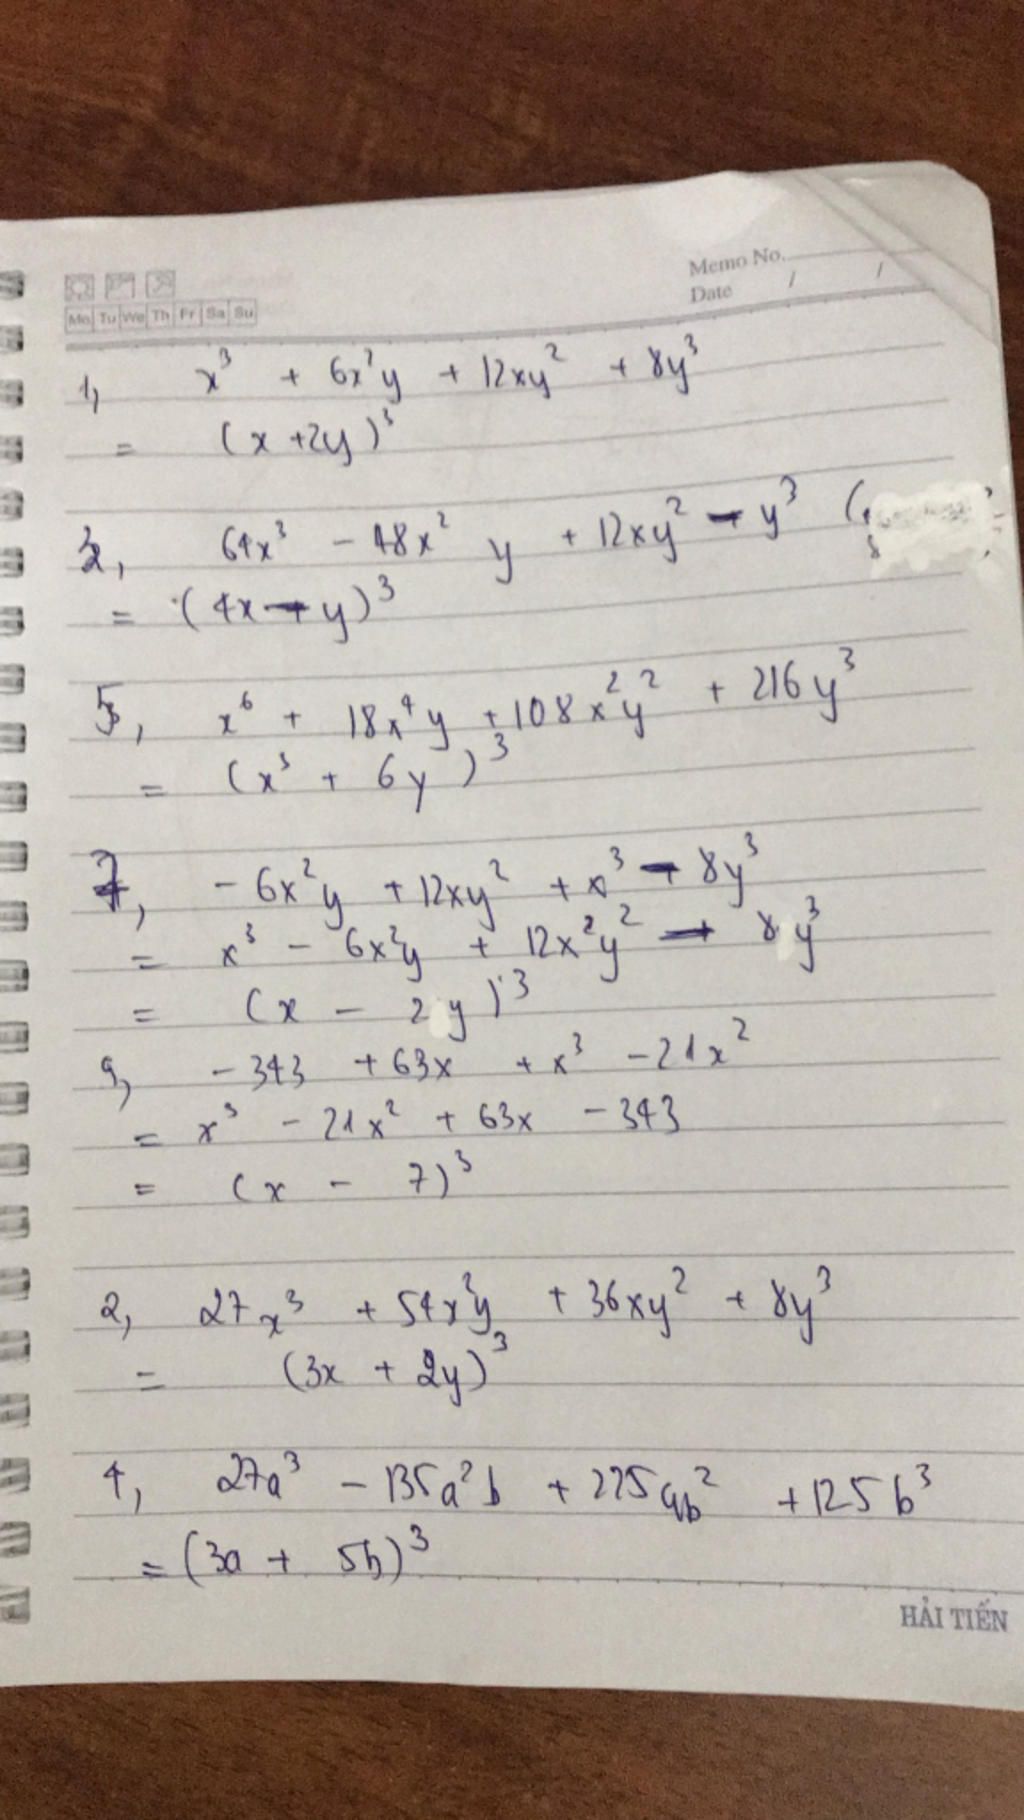 Memo No.
Date / /
Mo Tu We Th Fr Sa Su
1, x³ + 6x²y + 12xy² + 8y³
= (x + 2y)³
3, 64x³ - 48x² y + 12xy² - y³ (
= (4x - y)³
5, x⁶ + 18x⁴y + 108x²y² + 216y³
= (x³ + 6y)³
7, - 6x²y + 12xy² + x³ - 8y³
= x³ - 6x²y + 12x²y² - 8y³
= (x - 2y)³
9, - 343 + 63x + x³ - 21x²
= x³ - 21x² + 63x - 343
= (x - 7)³
2, 27x³ + 54x²y + 36xy² + 8y³
= (3x + 2y)³
4, 27a³ - 135a²b + 225ab² + 125b³
= (3a + 5b)³
HẢI TIẾN